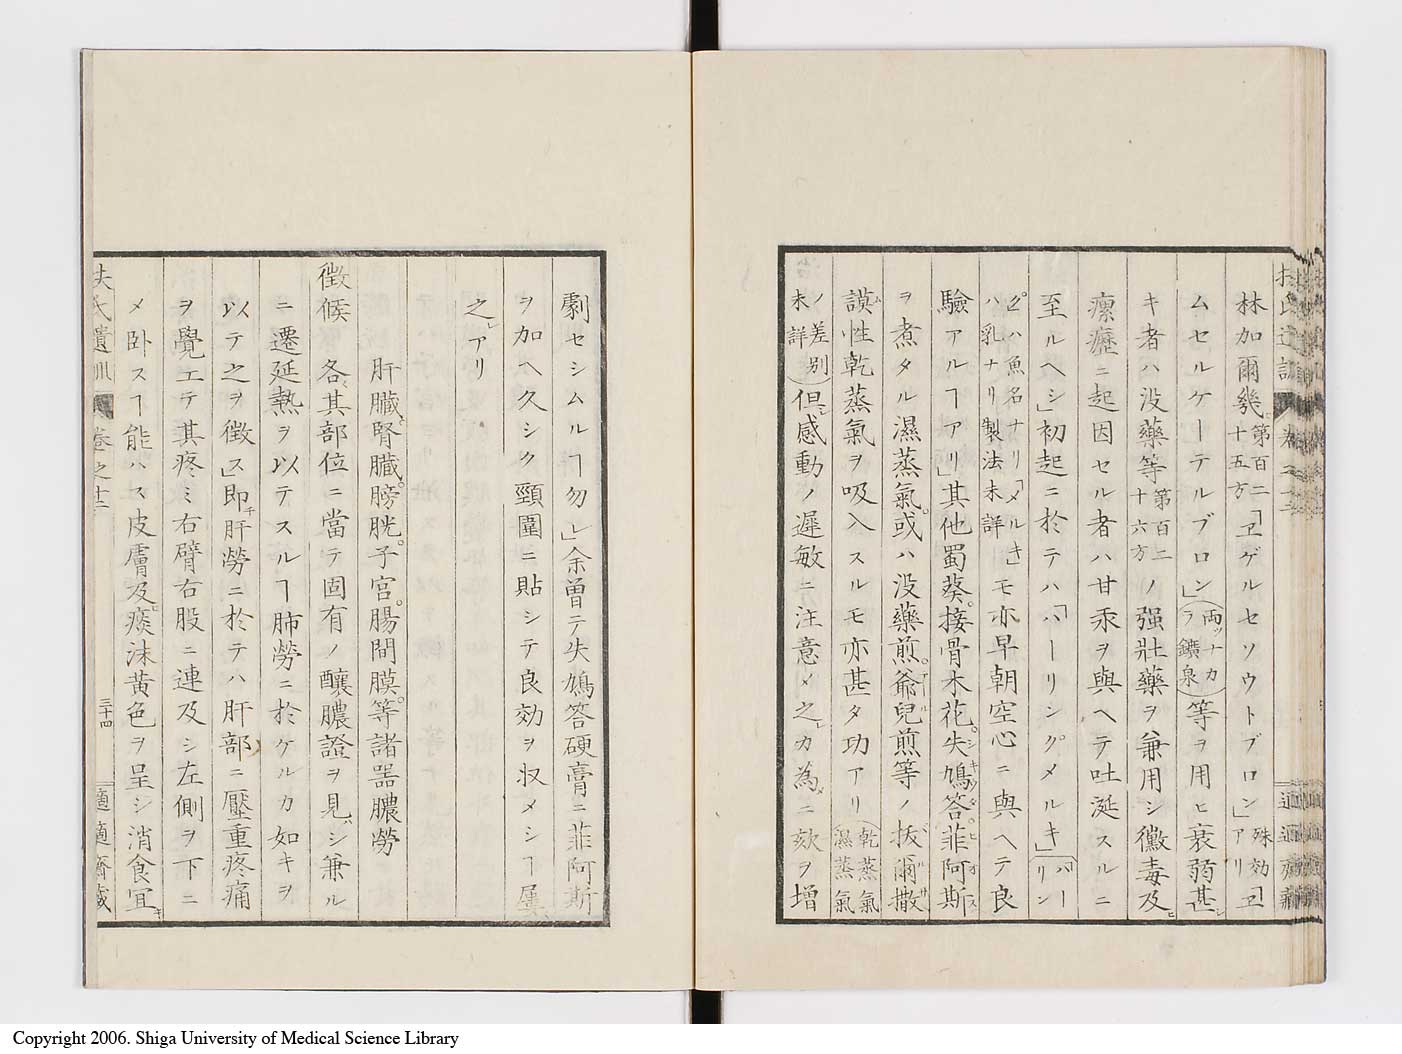 林加爾幾第百二十五方「ヱゲルセソウトブロン」殊効アリ「ヱ
ムセルケーテルブロン」両ツナカラ鑛泉等ヲ用ヒ衰弱甚シ
キ者ハ没藥等第百二十六方ノ强壯藥ヲ兼用シ黴毒及ヒ
瘰癧ニ起因セル者ハ甘汞ヲ與ヘテ吐涎スルニ
至ルヘシ」初起ニ於テハ「ハーリングメルキ」「ハーリン
グハ魚名ナリ「メルキ」ハ乳ナリ製法未詳モ亦早朝空心ニ與ヘテ良
驗アルヿアリ」其他蜀葵。接骨木花。失鳩答。菲阿斯
ヲ煮タル濕蒸氣。或ハ没藥煎。爺兒煎等ノ拔爾撒
謨性乾蒸氣ヲ吸入スルモ亦甚タ功アリ乾蒸氣濕蒸氣
ノ差別未詳但シ感動ノ遲敏ニ注意メ之レカ為メニ欬ヲ增
劇セシムルヿ勿レ」余曽テ失鳩答硬膏ニ菲阿斯
ヲ加ヘ久シク頸圍ニ貼シテ良効ヲ収メシヿ屢
之レアリ
肝臓。腎臓。膀胱。子宮。腸間膜。等諸噐膿勞
徴候 各其部位ニ當テ固有ノ釀膿證ヲ見シ兼ル
ニ遷延熱ヲ以テスルヿ肺勞ニ於ケルカ如キヲ
以テ之ヲ徴ス」即チ肝勞ニ於テハ肝部ニ壓重疼痛
ヲ覺エテ其疼ミ右臂右股ニ連及シ左側ヲ下ニ
メ卧スヿ能ハス皮膚及ヒ痰沫黄色ヲ呈シ消食宜キ
扶氏遺訓 卷之十二 三十四 適適齋藏
Copyright 2006. Shiga University of Medical Science Library